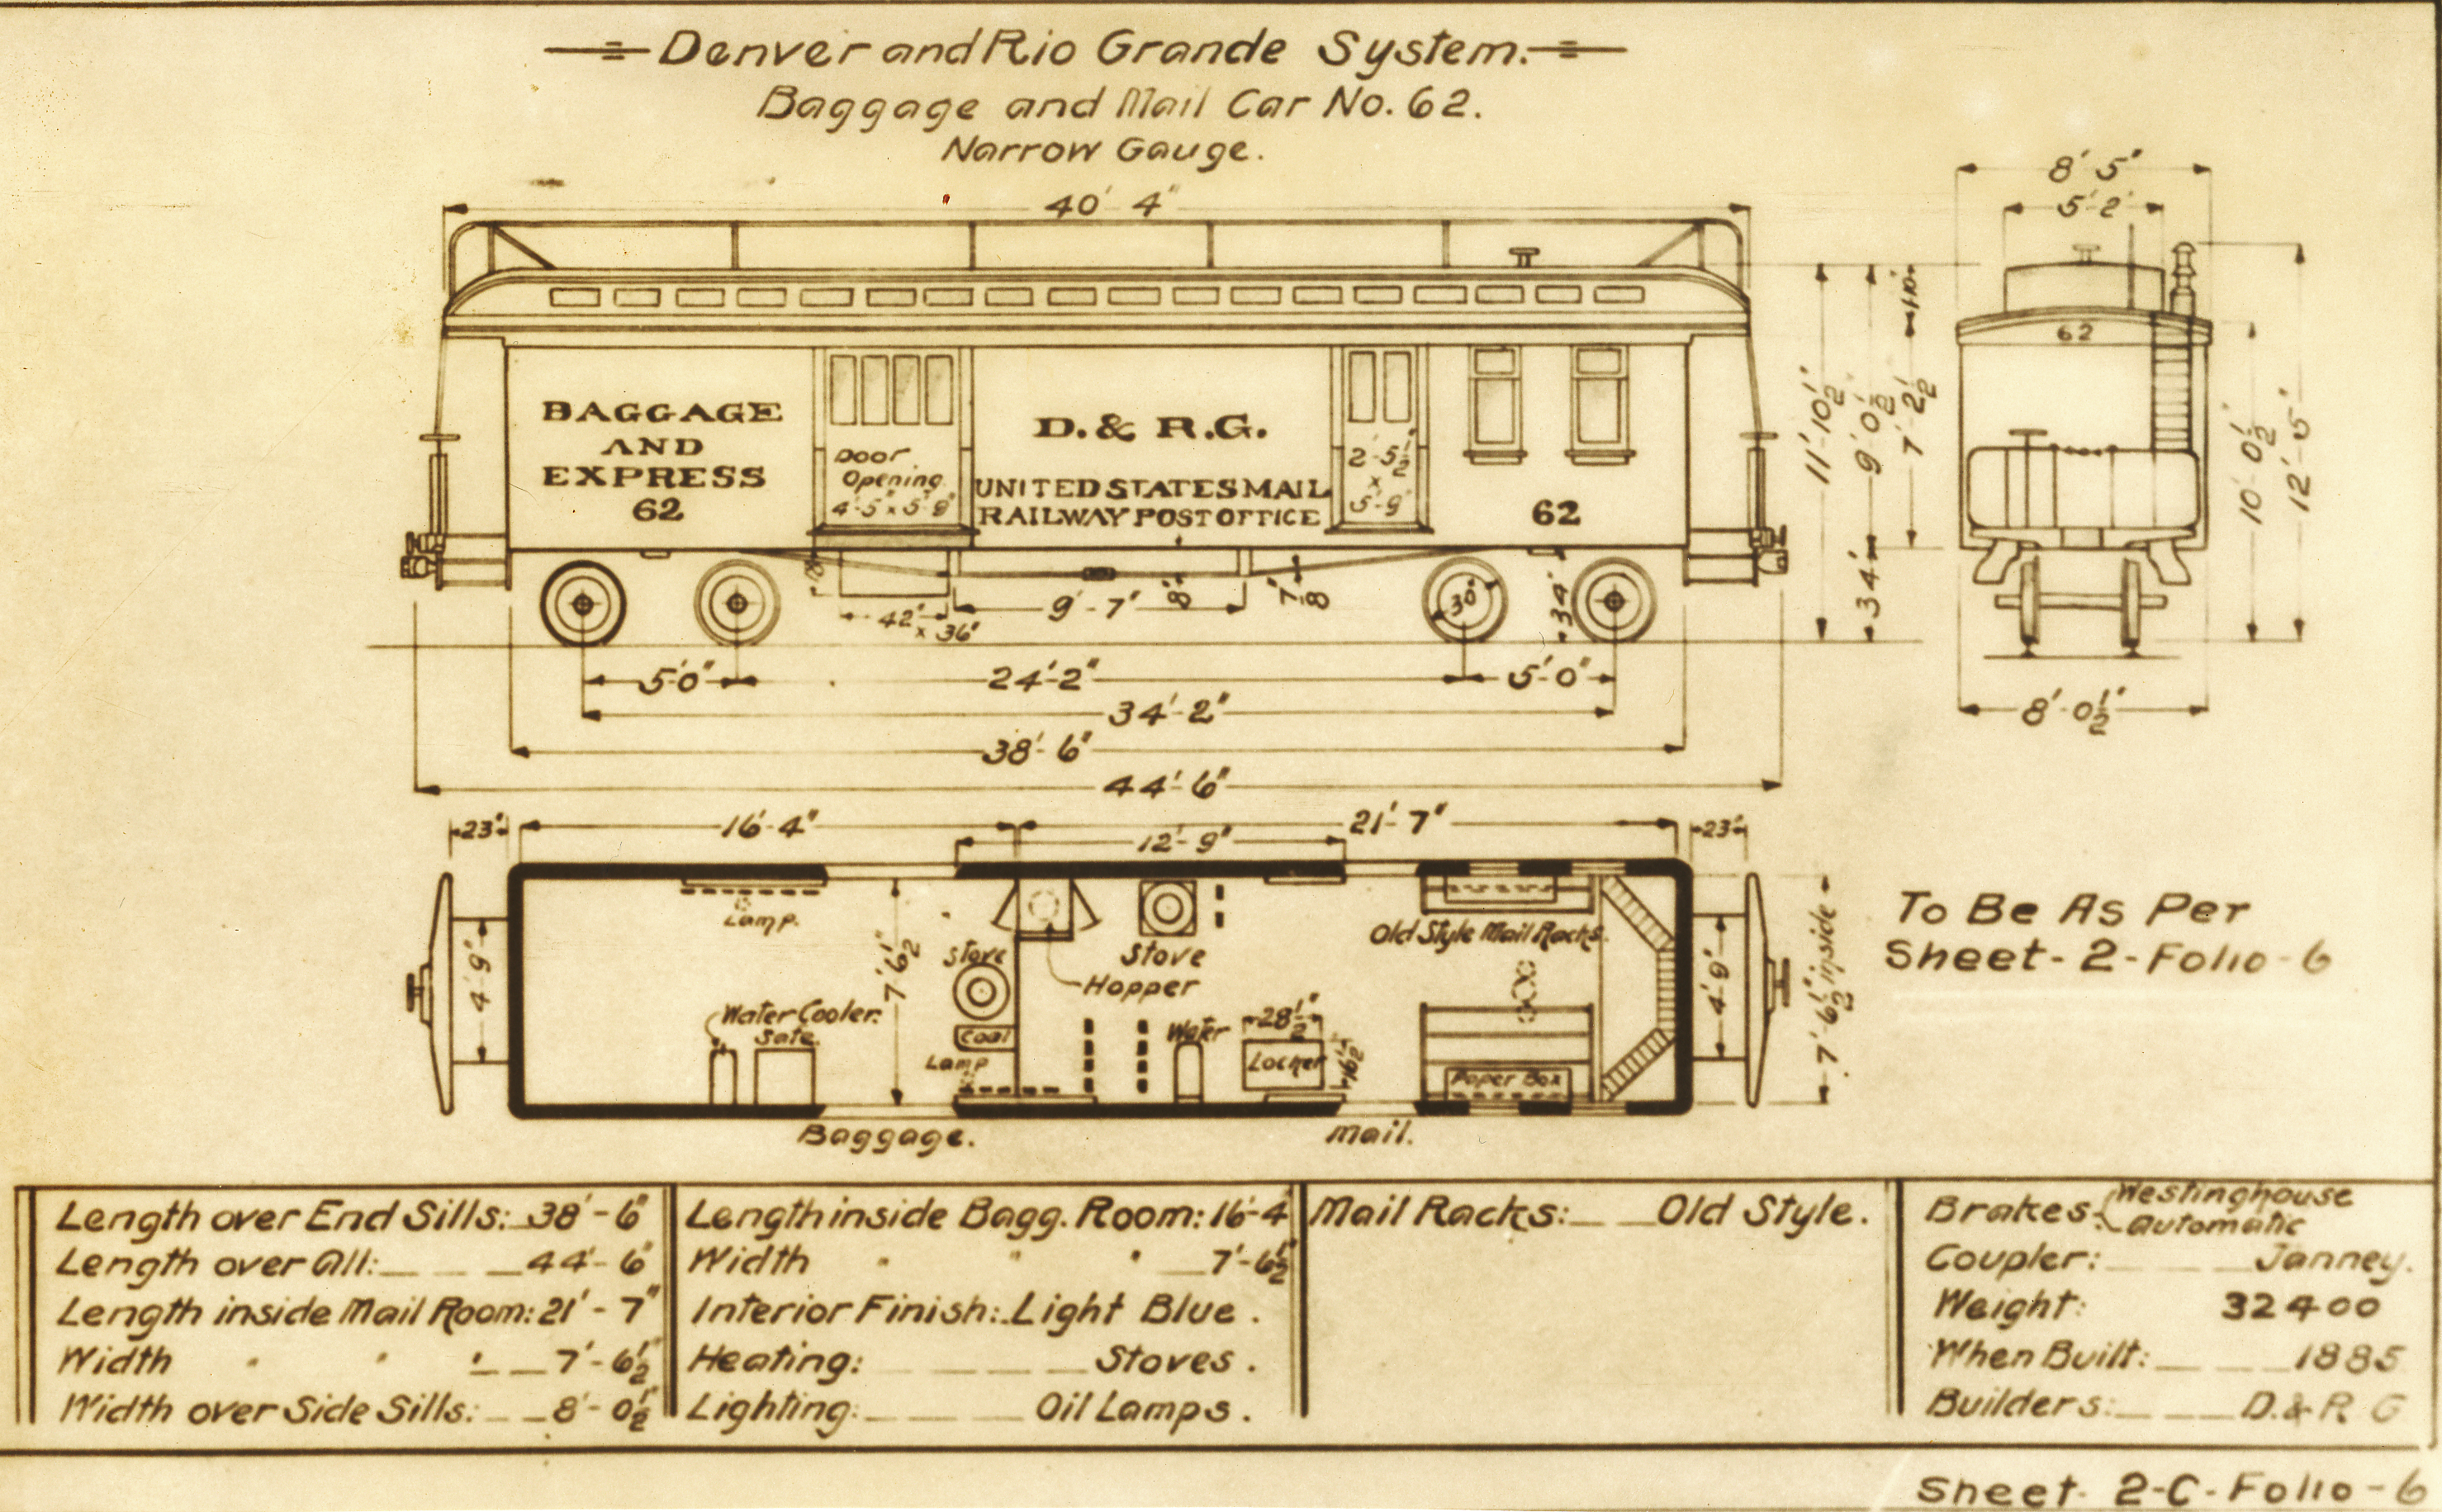 Denver and Rio Grande System.
Baggage and Mail Car No. 62.
Narrow Gauge.
40' 4"
8' 5"
5'-2"
62
BAGGAGE
AND
EXPRESS
62
Door
Opening
4'-5" x 5'-9"
D. & R.G.
UNITED STATES MAIL
RAILWAY POST OFFICE
2'-5½"
x
5'-9"
62
11'-10½"
9'-0½"
7'-2½"
34"
10'-0½"
12'-5"
18"
42"
x 36"
9'-7"
8"
7/8
30"
34"
5'-0"
24'-2"
5'-0"
34'-2"
38'-6"
44'-6"
8'-0½"
23"
16'-4"
12'-9"
21'-7"
23"
Lamp.
7'-6½"
Stove
Stove
Hopper
Old Style Mail Racks.
4'-9"
Water Cooler.
Safe.
Coal
Lamp
Water
28½"
Locker
16½"
Paper Box
4'-9"
7'-6½" inside
Baggage.
Mail.
To Be As Per
Sheet-2-Folio-6
Length over End Sills: 38'-6"
Length over All: 44'-6"
Length inside Mail Room: 21'-7"
Width " " " 7'-6½"
Width over Side Sills: 8'-0½"
Length inside Bagg. Room: 16'-4"
Width " " " 7'-6½"
Interior Finish: Light Blue.
Heating: Stoves.
Lighting: Oil Lamps.
Mail Racks: Old Style.
Brakes: Westinghouse
Automatic
Coupler: Janney.
Weight: 32400
When Built: 1885
Builders: D. & R G
Sheet 2-C-Folio-6